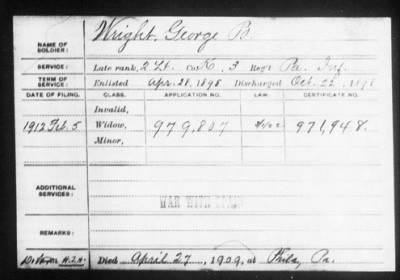 Wright, George B.
NAME OF SOLDIER:
SERVICE: Late rank, 2 Lt. Co. K, 3 Reg't Pa. Inf.
TERM OF SERVICE: Enlisted Apr. 28, 1898 Discharged Oct. 22, 1898
DATE OF FILING. CLASS. APPLICATION NO. LAW. CERTIFICATE NO.
Invalid,
1912 Feb. 5 Widow, 979,807 971,948.
Minor,
ADDITIONAL SERVICES:
WAR WITH SPAIN
REMARKS:
Died April 27, 1909, at Phila, Pa.